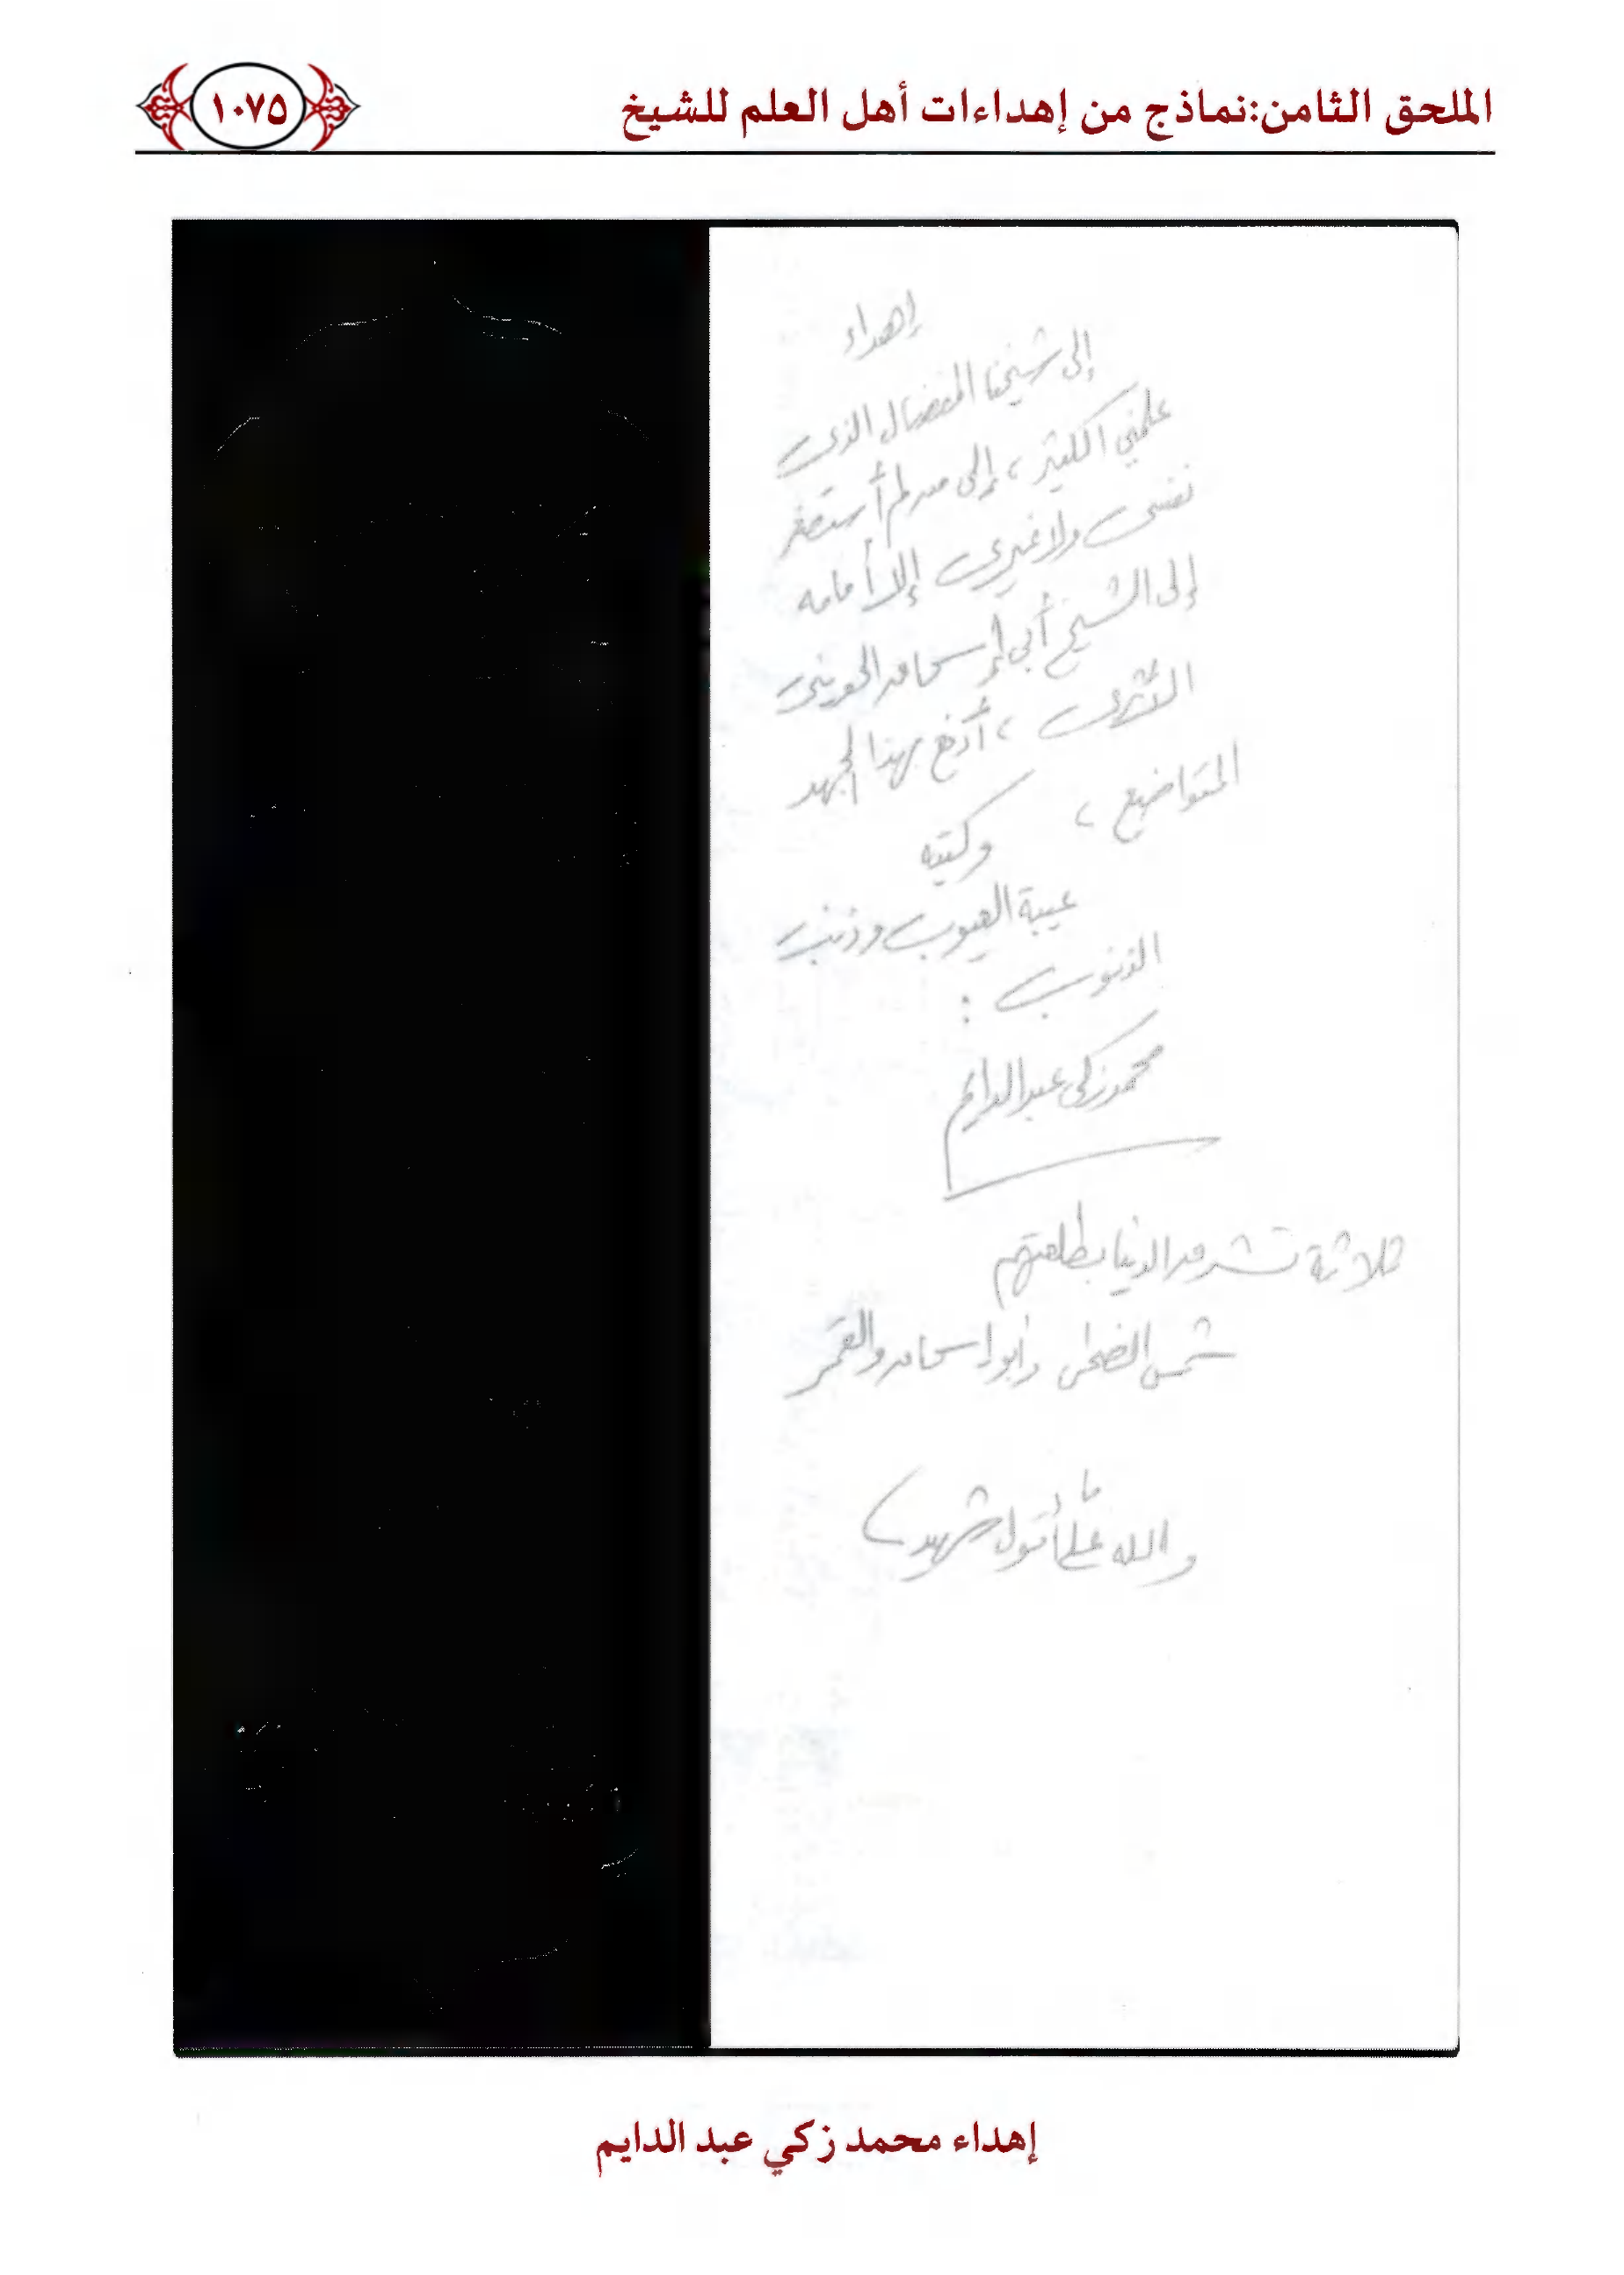 الملحق الثامن:نماذج من إهداءات أهل العلم للشيخ
١٠٧٥
إهداء
إلى شيخنا المفضال الذى
علمني الكثير، إلى من لم أستصغر
نفسى ولا غيرى إلا أمامه
إلى الشيخ أبي إسحاق الحوينى
الأثرى، أدفع بهذا الجهد
المتواضع،
وكتبه
عيبة العيوب وذنب
الذنوب :
محمد زكي عبد الدايم
ثلاثة تشرق الدنيا بطلعتهم
شمس الضحى وأبو إسحاق والقمر
والله على ما أقول شهيد
إهداء محمد زكي عبد الدايم